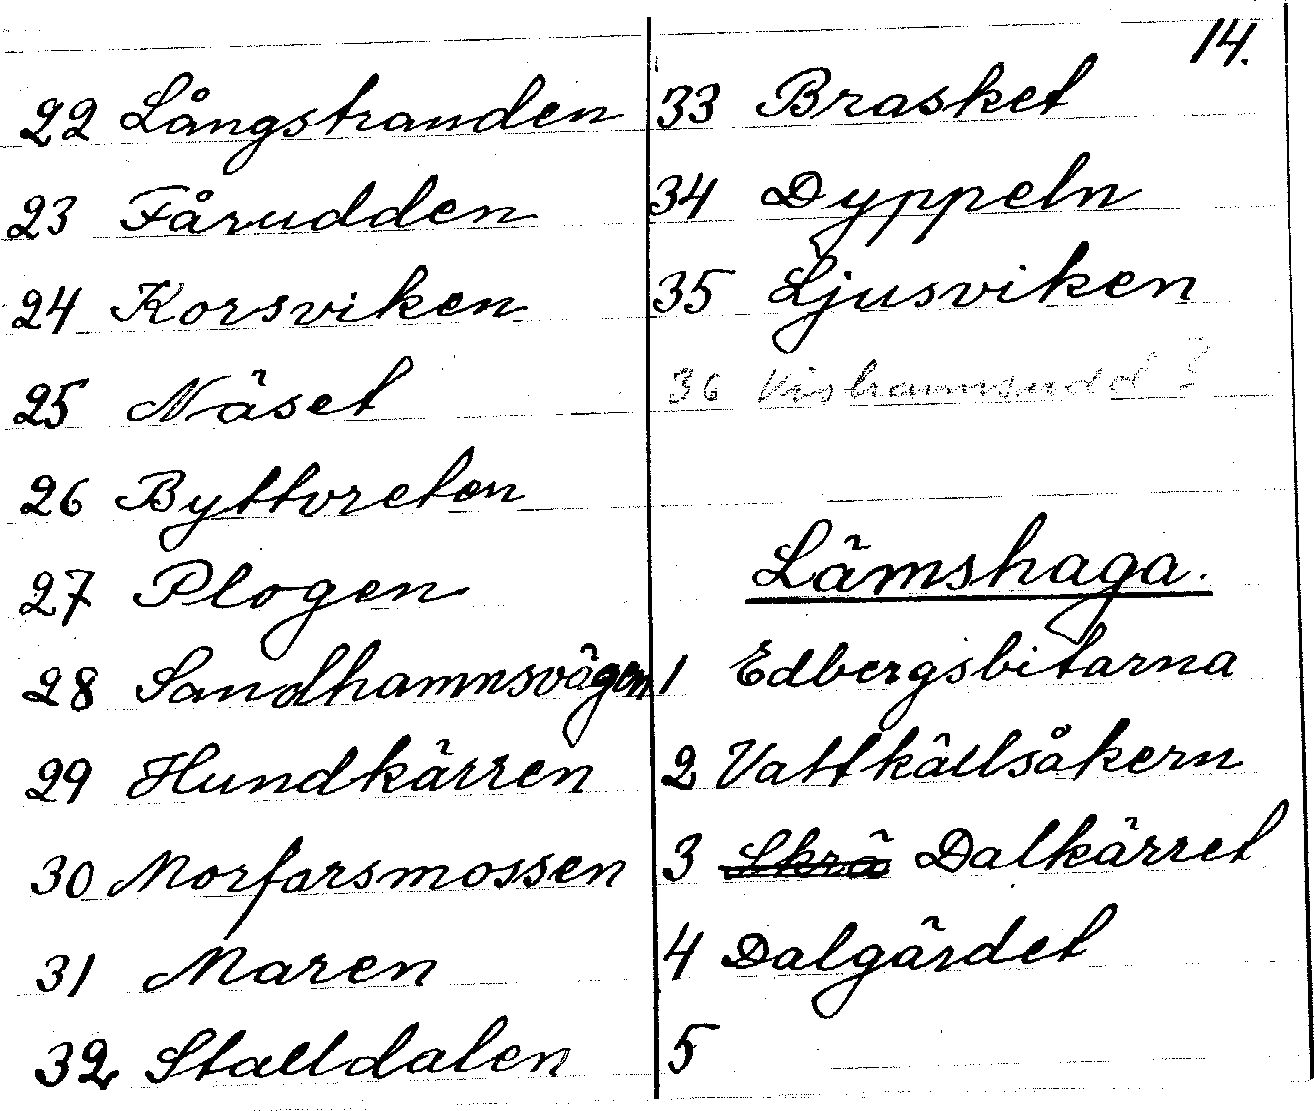 14.
22 Långstranden
23 Fårudden
24 Korsviken
25 Näset
26 Byttvreten
27 Plogen
28 Sandhamnsvägen
29 Hundkärren
30 Morfarsmossen
31 Maren
32 Stalldalen
33 Brasket
34 Dyppeln
35 Ljusviken
36 ?
Lämshaga.
1 Edbergsbitarna
2 Vattkällsåkern
3 Skrä Dalkärret
4 Dalgärdet
5